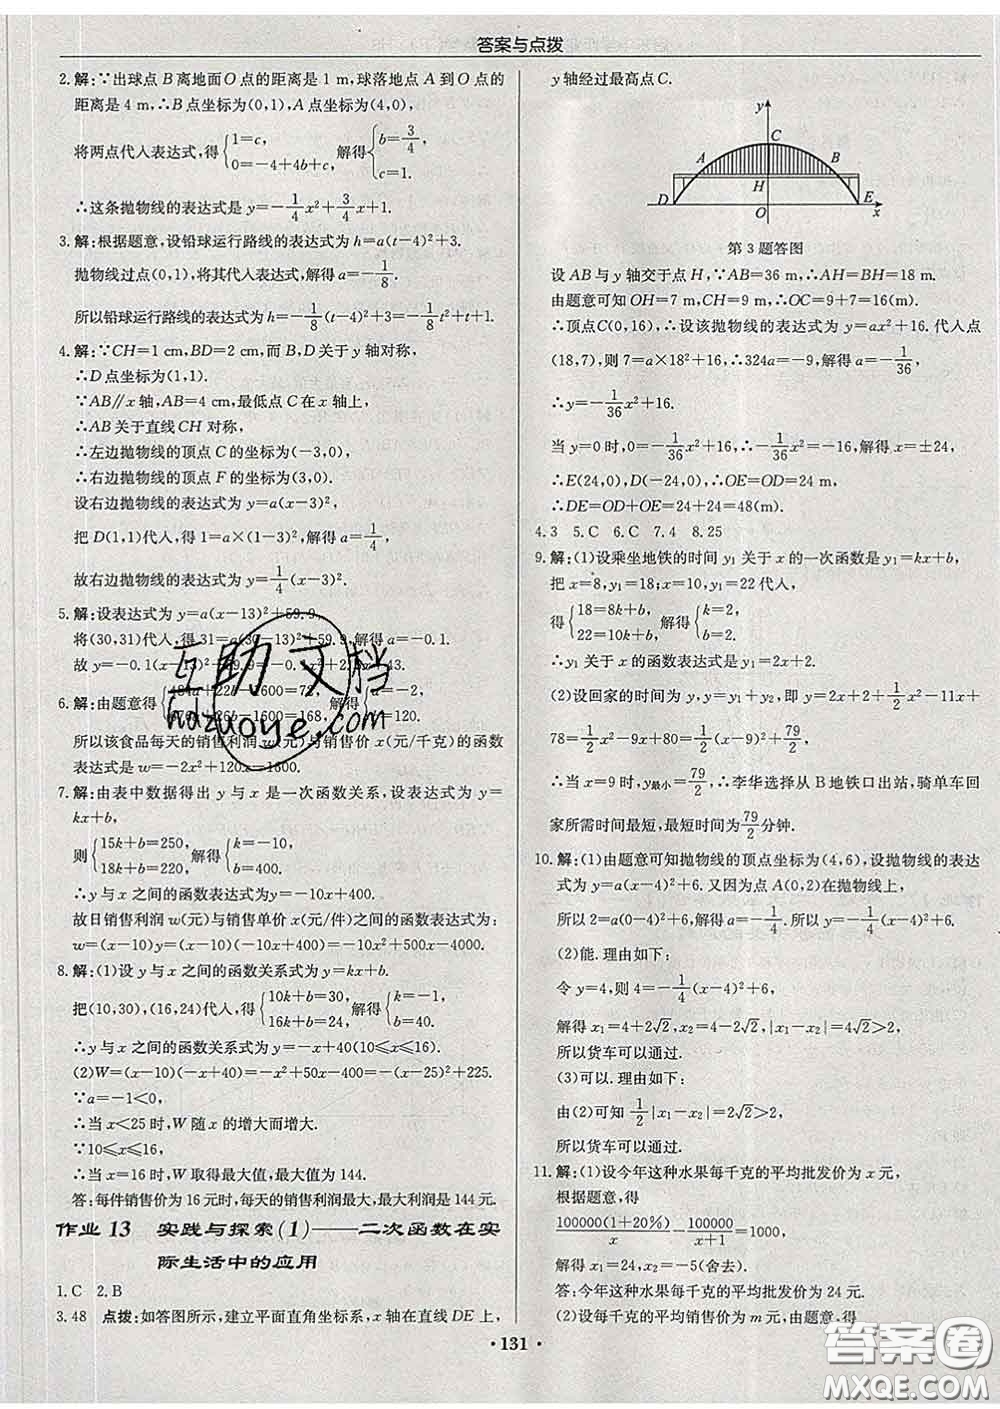 答案与点拨
2.解:∵出球点B离地面O点的距离是1 m,球落地点A到O点的
距离是4 m,∴B点坐标为(0,1),A点坐标为(4,0),
将两点代入表达式,得{1=c, 0=-4+4b+c, 解得{b=3/4, c=1.
∴这条抛物线的表达式是y=-1/4x²+3/4x+1.
3.解:根据题意,设铅球运行路线的表达式为h=a(t-4)²+3.
抛物线过点(0,1),将其代入表达式,解得a=-1/8.
所以铅球运行路线的表达式为h=-1/8(t-4)²+3=-1/8t²+t+1.
4.解:∵CH=1 cm,BD=2 cm,而B,D关于y轴对称,
∴D点坐标为(1,1).
∵AB∥x轴,AB=4 cm,最低点C在x轴上,
∴AB关于直线CH对称,
∴左边抛物线的顶点C的坐标为(-3,0),
∴右边抛物线的顶点F的坐标为(3,0).
设右边抛物线的表达式为y=a(x-3)².
把D(1,1)代入,得1=a×(1-3)²,解得a=1/4,
故右边抛物线的表达式为y=1/4(x-3)².
5.解:设表达式为y=a(x-13)²+59.9,
将(30,31)代入,得31=a(30-13)²+59.9,解得a=-0.1.
故y=-0.1(x-13)²+59.9=-0.1x²+2.6x+43.
6.解:由题意得 -1600=72, -1600=168, a=-2, b=120.
所以该食品每天的销售利润w(元)与销售价x(元/千克)的函数
表达式是w=-2x²+120x-1600.
7.解:由表中数据得出y与x是一次函数关系,设表达式为y=
kx+b,
则{15k+b=250, 18k+b=220, 解得{k=-10, b=400.
∴y与x之间的函数表达式为y=-10x+400.
故日销售利润w(元)与销售单价x(元/件)之间的函数表达式为:
w=(x-10)y=(x-10)(-10x+400)=-10x²+500x-4000.
8.解:(1)设y与x之间的函数关系式为y=kx+b.
把(10,30),(16,24)代入,得{10k+b=30, 16k+b=24, 解得{k=-1, b=40.
∴y与x之间的函数关系式为y=-x+40(10≤x≤16).
(2)W=(x-10)(-x+40)=-x²+50x-400=-(x-25)²+225.
∵a=-1<0,
∴当x<25时,W随x的增大而增大.
∵10≤x≤16,
∴当x=16时,W取得最大值,最大值为144.
答:每件销售价为16元时,每天的销售利润最大,最大利润是144元.
作业13 实践与探索(1)——二次函数在实
际生活中的应用
1.C 2.B
3.48 点拨:如答图所示,建立平面直角坐标系,x轴在直线DE上,
y轴经过最高点C.
y
C
A B
H
D O E x
第3题答图
设AB与y轴交于点H,∵AB=36 m,∴AH=BH=18 m.
由题意可知OH=7 m,CH=9 m,∴OC=9+7=16(m).
∴顶点C(0,16),∴设该抛物线的表达式为y=ax²+16.代入点
(18,7),则7=a×18²+16,∴324a=-9,解得a=-1/36,
∴y=-1/36x²+16.
当y=0时,0=-1/36x²+16,∴-1/36x²=-16,解得x=±24,
∴E(24,0),D(-24,0),∴OE=OD=24 m,
∴DE=OD+OE=24+24=48(m).
4.3 5.C 6.C 7.4 8.25
9.解:(1)设乘坐地铁的时间y₁关于x的一次函数是y₁=kx+b,
把x=8,y₁=18;x=10,y₁=22代入,
得{18=8k+b, 22=10k+b, 解得{k=2, b=2.
∴y₁关于x的函数表达式是y₁=2x+2.
(2)设回家的时间为y,y=y₁+y₂,即y=2x+2+1/2x²-11x+
78=1/2x²-9x+80=1/2(x-9)²+79/2,
∴当x=9时,y最小=79/2,∴李华选择从B地铁口出站,骑单车回
家所需时间最短,最短时间为79/2分钟.
10.解:(1)由题意可知抛物线的顶点坐标为(4,6),设抛物线的表达
式为y=a(x-4)²+6.又因为点A(0,2)在抛物线上,
所以2=a(0-4)²+6,解得a=-1/4.所以y=-1/4(x-4)²+6.
(2)能.理由如下:
令y=4,则4=-1/4(x-4)²+6,
解得x₁=4+2√2,x₂=4-2√2,|x₁-x₂|=4√2>2,
所以货车可以通过.
(3)可以.理由如下:
由(2)可知1/2|x₁-x₂|=2√2>2,
所以货车可以通过.
11.解:(1)设今年这种水果每千克的平均批发价为x元,
根据题意,得
100000(1+20%)/x-100000/(x+1)=1000,
解得x₁=24,x₂=-5(舍去).
答:今年这种水果每千克的平均批发价为24元.
(2)设每千克的平均销售价为m元,由题意,得
·131·
互助文档
hdzuoye.com
答案圈
MXQE.COM